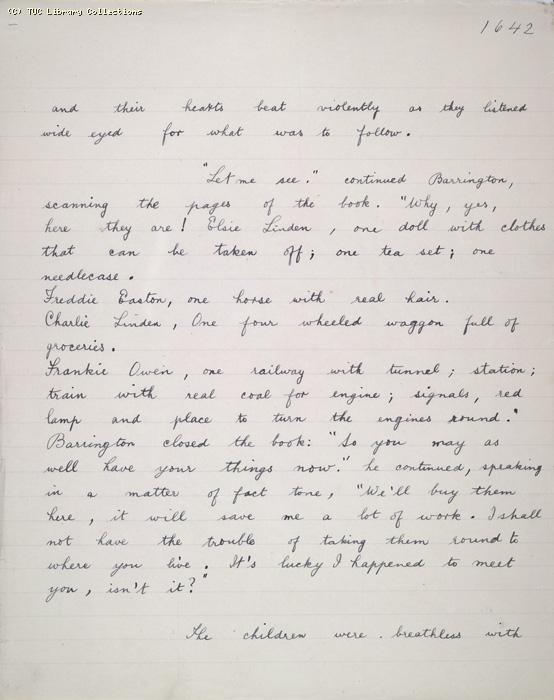 (C) TUC Library Collections
1642
and their hearts beat violently as they listened
wide eyed for what was to follow.
"Let me see." continued Barrington,
scanning the pages of the book. "Why, yes,
here they are! Elsie Linden, one doll with clothes
that can be taken off; one tea set; one
needlecase.
Freddie Easton, one horse with real hair.
Charlie Linden, One four wheeled waggon full of
groceries.
Frankie Owen, one railway with tunnel; station;
train with real coal for engine; signals, red
lamp and place to turn the engines round."
Barrington closed the book: "So you may as
well have your things now." he continued, speaking
in a matter of fact tone, "We'll buy them
here, it will save me a lot of work. I shall
not have the trouble of taking them round to
where you live. It's lucky I happened to meet
you, isn't it?"
The children were breathless with